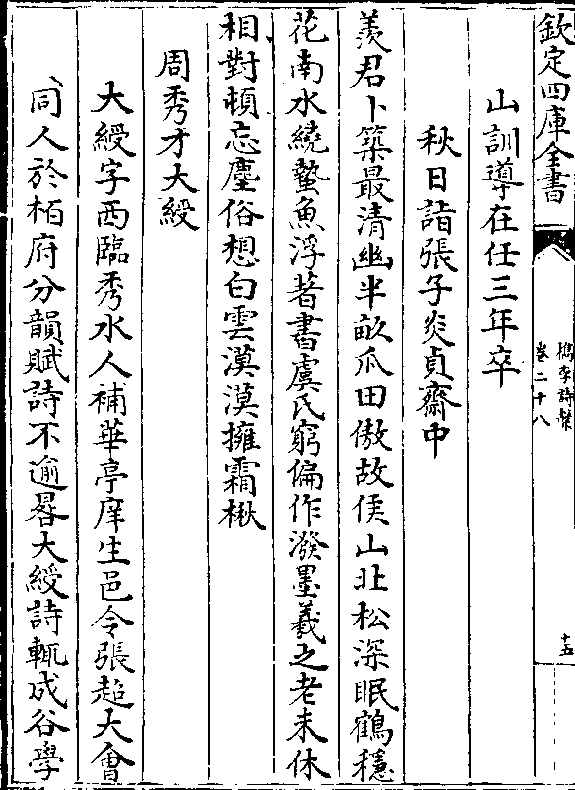 欽定四庫全書
檇李詩繫
卷二十八
十五
山訓導在任三年卒
秋日詣張子炎貞齋中
羨君卜築最清幽半畝瓜田傲故侯山北松深眠鶴穩
花南水繞蟄魚浮著書虞氏窮偏作潑墨羲之老未休
相對頓忘塵俗想白雲漠漠擁霜楸
周秀才大綬
大綬字西臨秀水人補華亭庠生邑令張超大會
同人於柏府分韻賦詩不逾晷大綬詩輒成谷學